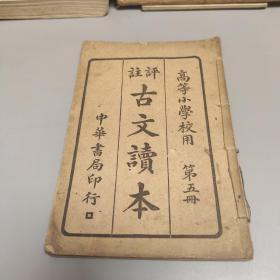 高等小學校用 第五冊
評註
古文讀本
中華書局印行